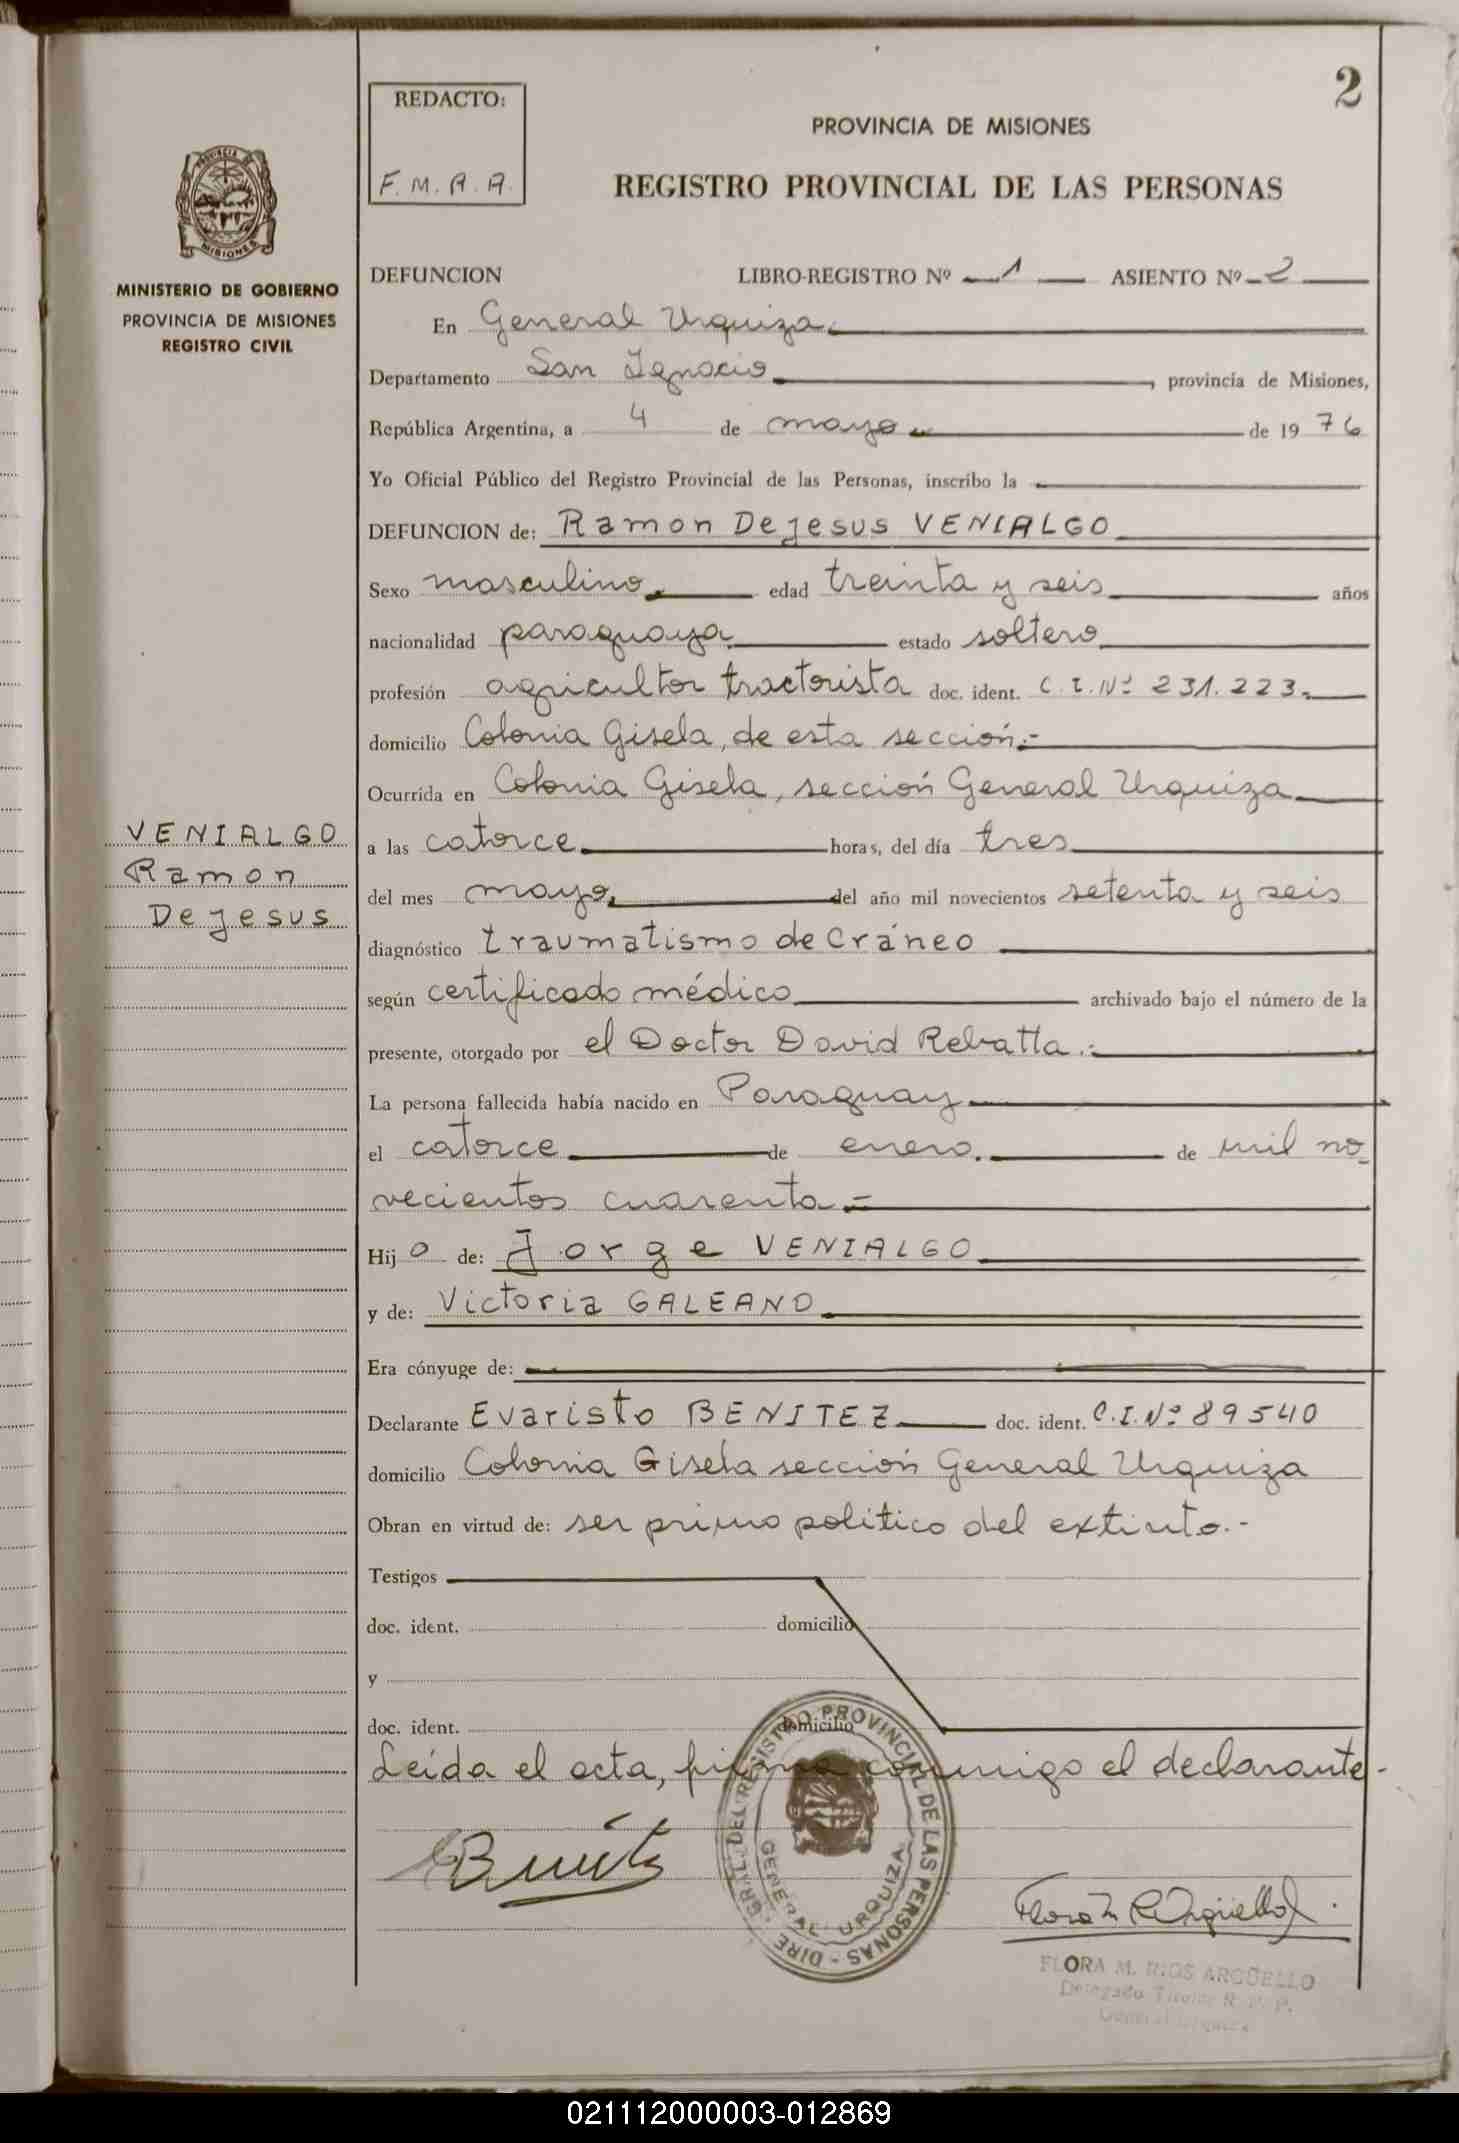 2
REDACTO:
F. M. A. A.
PROVINCIA DE MISIONES
REGISTRO PROVINCIAL DE LAS PERSONAS
PROVINCIA DE
MISIONES
MINISTERIO DE GOBIERNO
PROVINCIA DE MISIONES
REGISTRO CIVIL
DEFUNCION LIBRO-REGISTRO Nº 1 ASIENTO Nº 2
En General Urquiza
Departamento San Ignacio, provincia de Misiones,
República Argentina, a 4 de mayo de 19 76
Yo Oficial Público del Registro Provincial de las Personas, inscribo la
DEFUNCION de: Ramon De jesus VENIALGO
Sexo masculino edad treinta y seis años
nacionalidad paraguaya estado soltero
profesión agricultor tractorista doc. ident. C. I. Nº 231.223.-
domicilio Colonia Gisela, de esta sección.-
Ocurrida en Colonia Gisela, sección General Urquiza
VENIALGO
Ramon
De jesus
a las catorce horas, del día tres
del mes mayo, del año mil novecientos setenta y seis
diagnóstico traumatismo de Cráneo
según certificado médico archivado bajo el número de la
presente, otorgado por el Doctor David Rebatta.-
La persona fallecida había nacido en Paraguay
el catorce de enero. de mil no
vecientos cuarenta.=
Hijo de: Jorge VENIALGO
y de: Victoria GALEANO
Era cónyuge de:
Declarante Evaristo BENITEZ doc. ident. C.I.Nº 89540
domicilio Colonia Gisela sección General Urquiza
Obran en virtud de: ser primo politico del extinto.-
Testigos
doc. ident. domicilio
y
doc. ident. domicilio
Leída el acta, firma conmigo el declarante.-
DIRE - GRAL. DEL REGISTRO PROVINCIAL DE LAS PERSONAS -
GENERAL URQUIZA
FLORA M. RIOS ARGÜELLO
Delegado Titular R. P. P.
General Urquiza
021112000003-012869